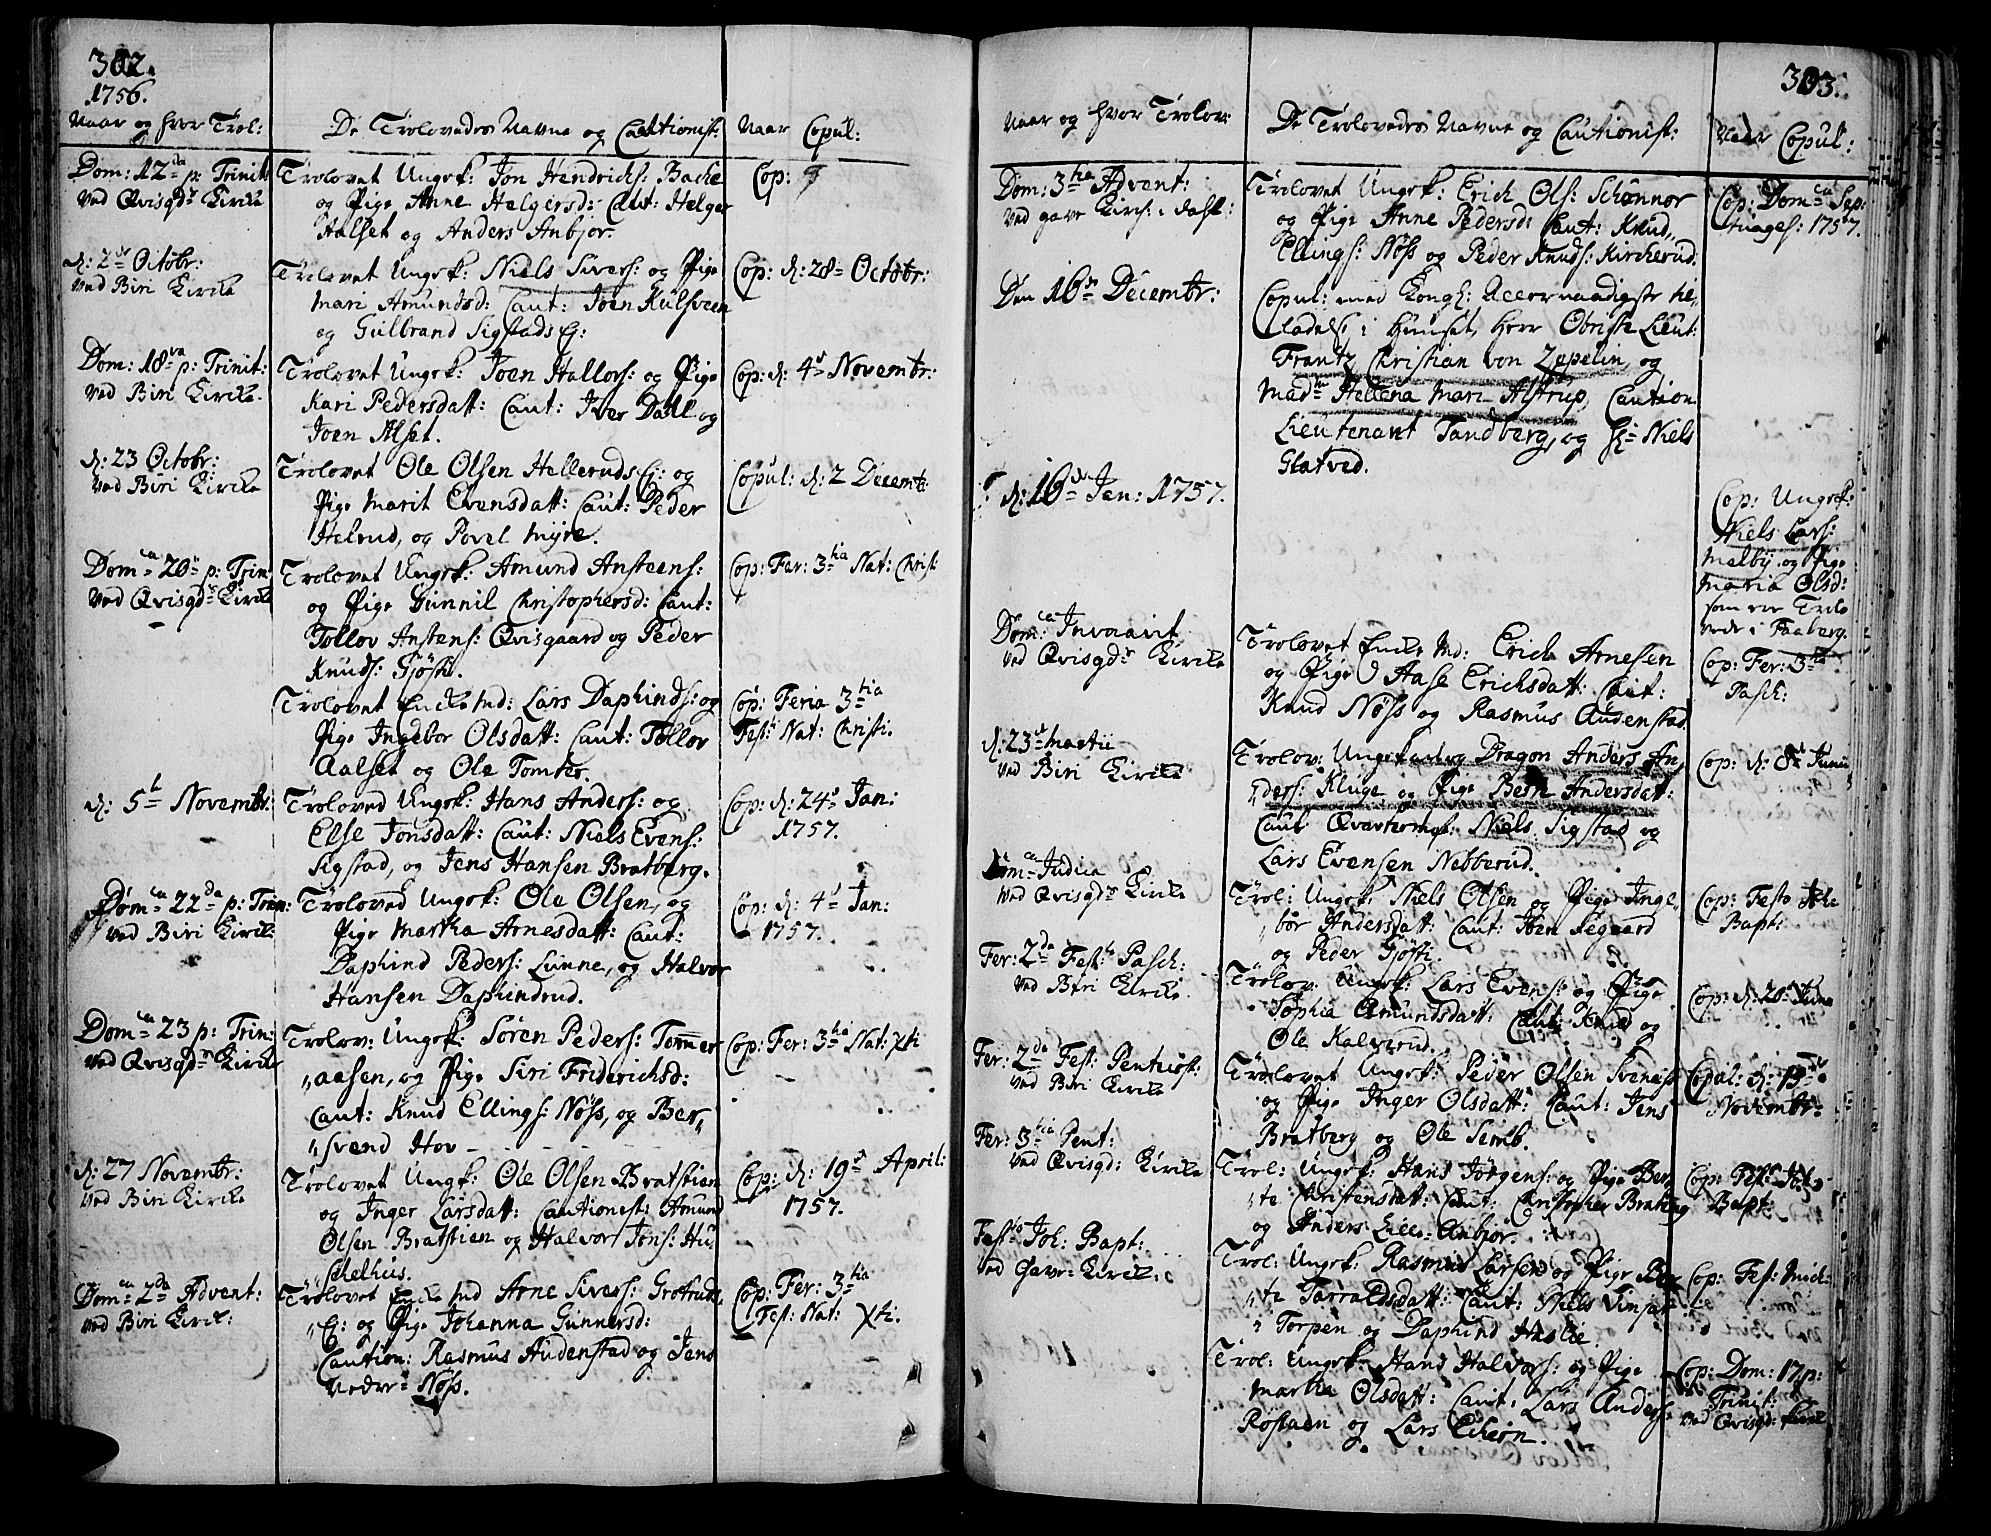 302.
1756.
Naar og hvor Trol:
De Trolovedes Navne og Cautionist:
Naar Copul:
Dom: 12da p: Trinit:
ved Qvisgds Kirke
Trolovet Ungk: Jon Hendrichs: Bache
og Pige Anne Helgersd: Caut: Helger
Halset og Anders Anbjor.
Cop:
d: 2de Octobr:
ved Biri Kirke
Trolovet Ungk: Niels Sivers: og Pige
Mari Amundsd: Caut: Joen Kulsveen
og Gulbrand Sigstads E:
Cop: d: 28 Octobr:
Dom: 18va p: Trinit:
ved Biri Kirke.
Trolovet Ungk: Joen Hallors: og Pige
Kari Pedersdatt: Caut: Iver Dahl og
Joen Alset.
Cop: d: 4de Novembr:
d: 23 Octobr:
ved Biri Kirke
Trolovet Ole Olsen HellerudsE: og
Pige Marit Evensdatt: Caut: Peder
Helrud, og Povel Myre.
Copul: d: 2 Decemb:
Domca 20 p: Trin:
ved Qvisgds Kirke
Trolovet Ungk: Amund Ansteens:
og Pige Gunnil Christophersd: Caut:
Tollov Anstens: Qvisgaard og Peder
Knuds: Gjøsti.
Cop: Fer: 3tia Nat: Christ:
Trolovet Encke Md: Lars Daphinds: og
Pige Ingebor Olsdatt: Caut: Tollov
Aalset og Ole Tomter.
Cop: Feria 3tia
Fest: Nat: Christi.
d: 5t Novembr:
Troloved Ungk: Hans Anders: og
Else Jonsdatt: Caut: Niels Evens:
Sigstad, og Jens Hansen Bratberg.
Cop: d: 24d Jan:
1757.
Domca 22da p: Trin:
ved Biri Kirke:
Troloved Ungk: Ole Olsen, og
Pige Martha Arnesdatt: Caut:
Daphind Peders: Lunne, og Halvor
Hansen Daphindrud.
Cop: d: 4d Jan:
1757.
Domca 23 p: Trin:
ved Qvisgds Kirke
Trolov: Ungk: Søren Peders: Tømmer
„aasen, og Pige Siri Friderichsd:
Caut: Knud Ellings: Nøss, og Ber„
„svend Hov - - - - -
Cop: Fer: 3tia Nat: Xti
d: 27 Novembr:
ved Biri Kirke
Trolovet Ungk: Ole Olsen Bratstien
og Inger Larsdatt: Cautionest: Amund
Olsen Bratstien og Halvor Jons: Hu„
„schelhus.
Cop: d: 19d April:
1757.
Domca 2da Advent:
ved Biri Kirk:
Trolovet Encke Md Arne Sivers: Grøtruds
„E: og Pige Johanna Gunnersd:
Caution: Rasmus Audenstad og Jens
Nedre Nøss.
Cop: Fer: 3tia
Fest: Nat: Xti.
303.
Naar og hvor Trolov:
De Trolovedes Navne og Cautionist:
Naar Copul:
Dom: 3tia Advent:
Trolovet Ungk: Erich Ols: Schønnor
og Pige Anne Pedersd: Caut: Knud
Ellings: Nøss og Peder Knuds: Kircherud.
Cop: Domca Sep:
tuages: 1757.
Den 16de Decembr:
Copul: med Kongl: Allernaadigste til„
ladelse i Huuset, Herr Obrist Lieut:
Frantz Christian von Zepelin, og
Madme Hellena Mari Alstrup, Caution
Lieutenant Tandberg, og Hr Niels
Glatved.
d: 16de Jan: 1757.
Cop: Ungk:
Niels Lars:
Melby og Pige
Maria Olsd:
som ere Trolo
vede i Faaberg.
Domca Invocavit
ved Qvisgds Kirke
Trolovet Encke Md: Erich Arnesen
og Pige Aase Erichsdatt: Caut:
Knud Nøss og Rasmus Audenstad.
Cop: Fer: 3tia
Pasch:
d: 23d Martii
ved Biri Kirke
Trolov: Ungkarl og Dragon Anders An„
„ders: Kluge og Pige Berth Andersdatt:
Caut: Qvartermest: Niels Sigstad og
Lars Evensen Nebberud.
Cop: d: 8d Junii
Domca Judica
ved Qvisgds Kirke
Trol: Ungk: Niels Olsen og Pige Inge„
„bor Andersdatt: Caut: Joen Segaard
og Peder Gjøsti.
Cop: Festo Joh:
Bapt:
Fer: 2da Fest: Pasch:
ved Biri Kirke.
Trolov: Ungk: Lars Evens: og Pige
Sophia Amundsdatt: Caut: Knud og
Ole Kalverud.
Cop: d: 28d Juni
Fer: 2da Fest: Pentecost:
ved Biri Kirke
Trolovet Ungk: Peder Olsen Svenæss
og Pige Inger Olsdatt: Caut: Jens
Bratberg og Ole Semb.
Copul: d: 15de
Novembr:
Fer: 3tia Pent:
ved Qvisgd: Kirke
Trol: Ungk: Hans Jørgens: og Pige Ber„
„te Christensdatt: Caut: Christopher Bratberg
og Anders Lille Anbjør.
Cop: Fest: Joh:
Bapt:
Festo Joh: Bapt:
ved Gave Kirke:
Trol: Ungk: Rasmus Larsen og Pige Ber
„te Tarraldsdatt: Caut: Niels Vinjar
i Torpen og Daphind Haslie
Cop: Fest: Mich:
Trol: Ungk: Hans Halvors: og Pige
Martha Olsdatt: Caut: Lars Anders:
Røstaen og Lars Echern.
Cop: Dom: 17 p:
Trinit:
ved Qvisgd: Kirk